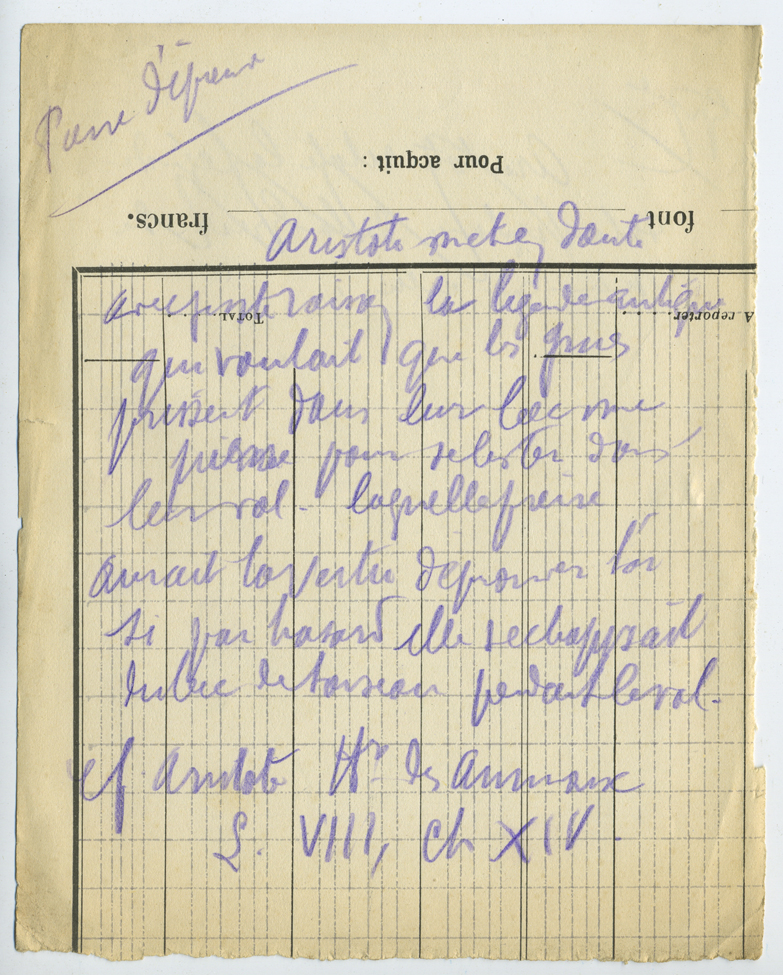 Pierre d'épreuve
Pour acquit :
font francs.
Aristote met en doute
avec juste raison la légende antique
A reporter . . . . . TOTAL . . . . .
qui voulait que les grues
prissent dans leur bec une
pierre pour se lester dans
leur vol - laquelle pierre
aurait la vertu d'éprouver l'or
si par hasard elle s'echappait
du bec de l'oiseau pendant le vol.
cf Aristote Hre des animaux
L. VIII, ch XIV.